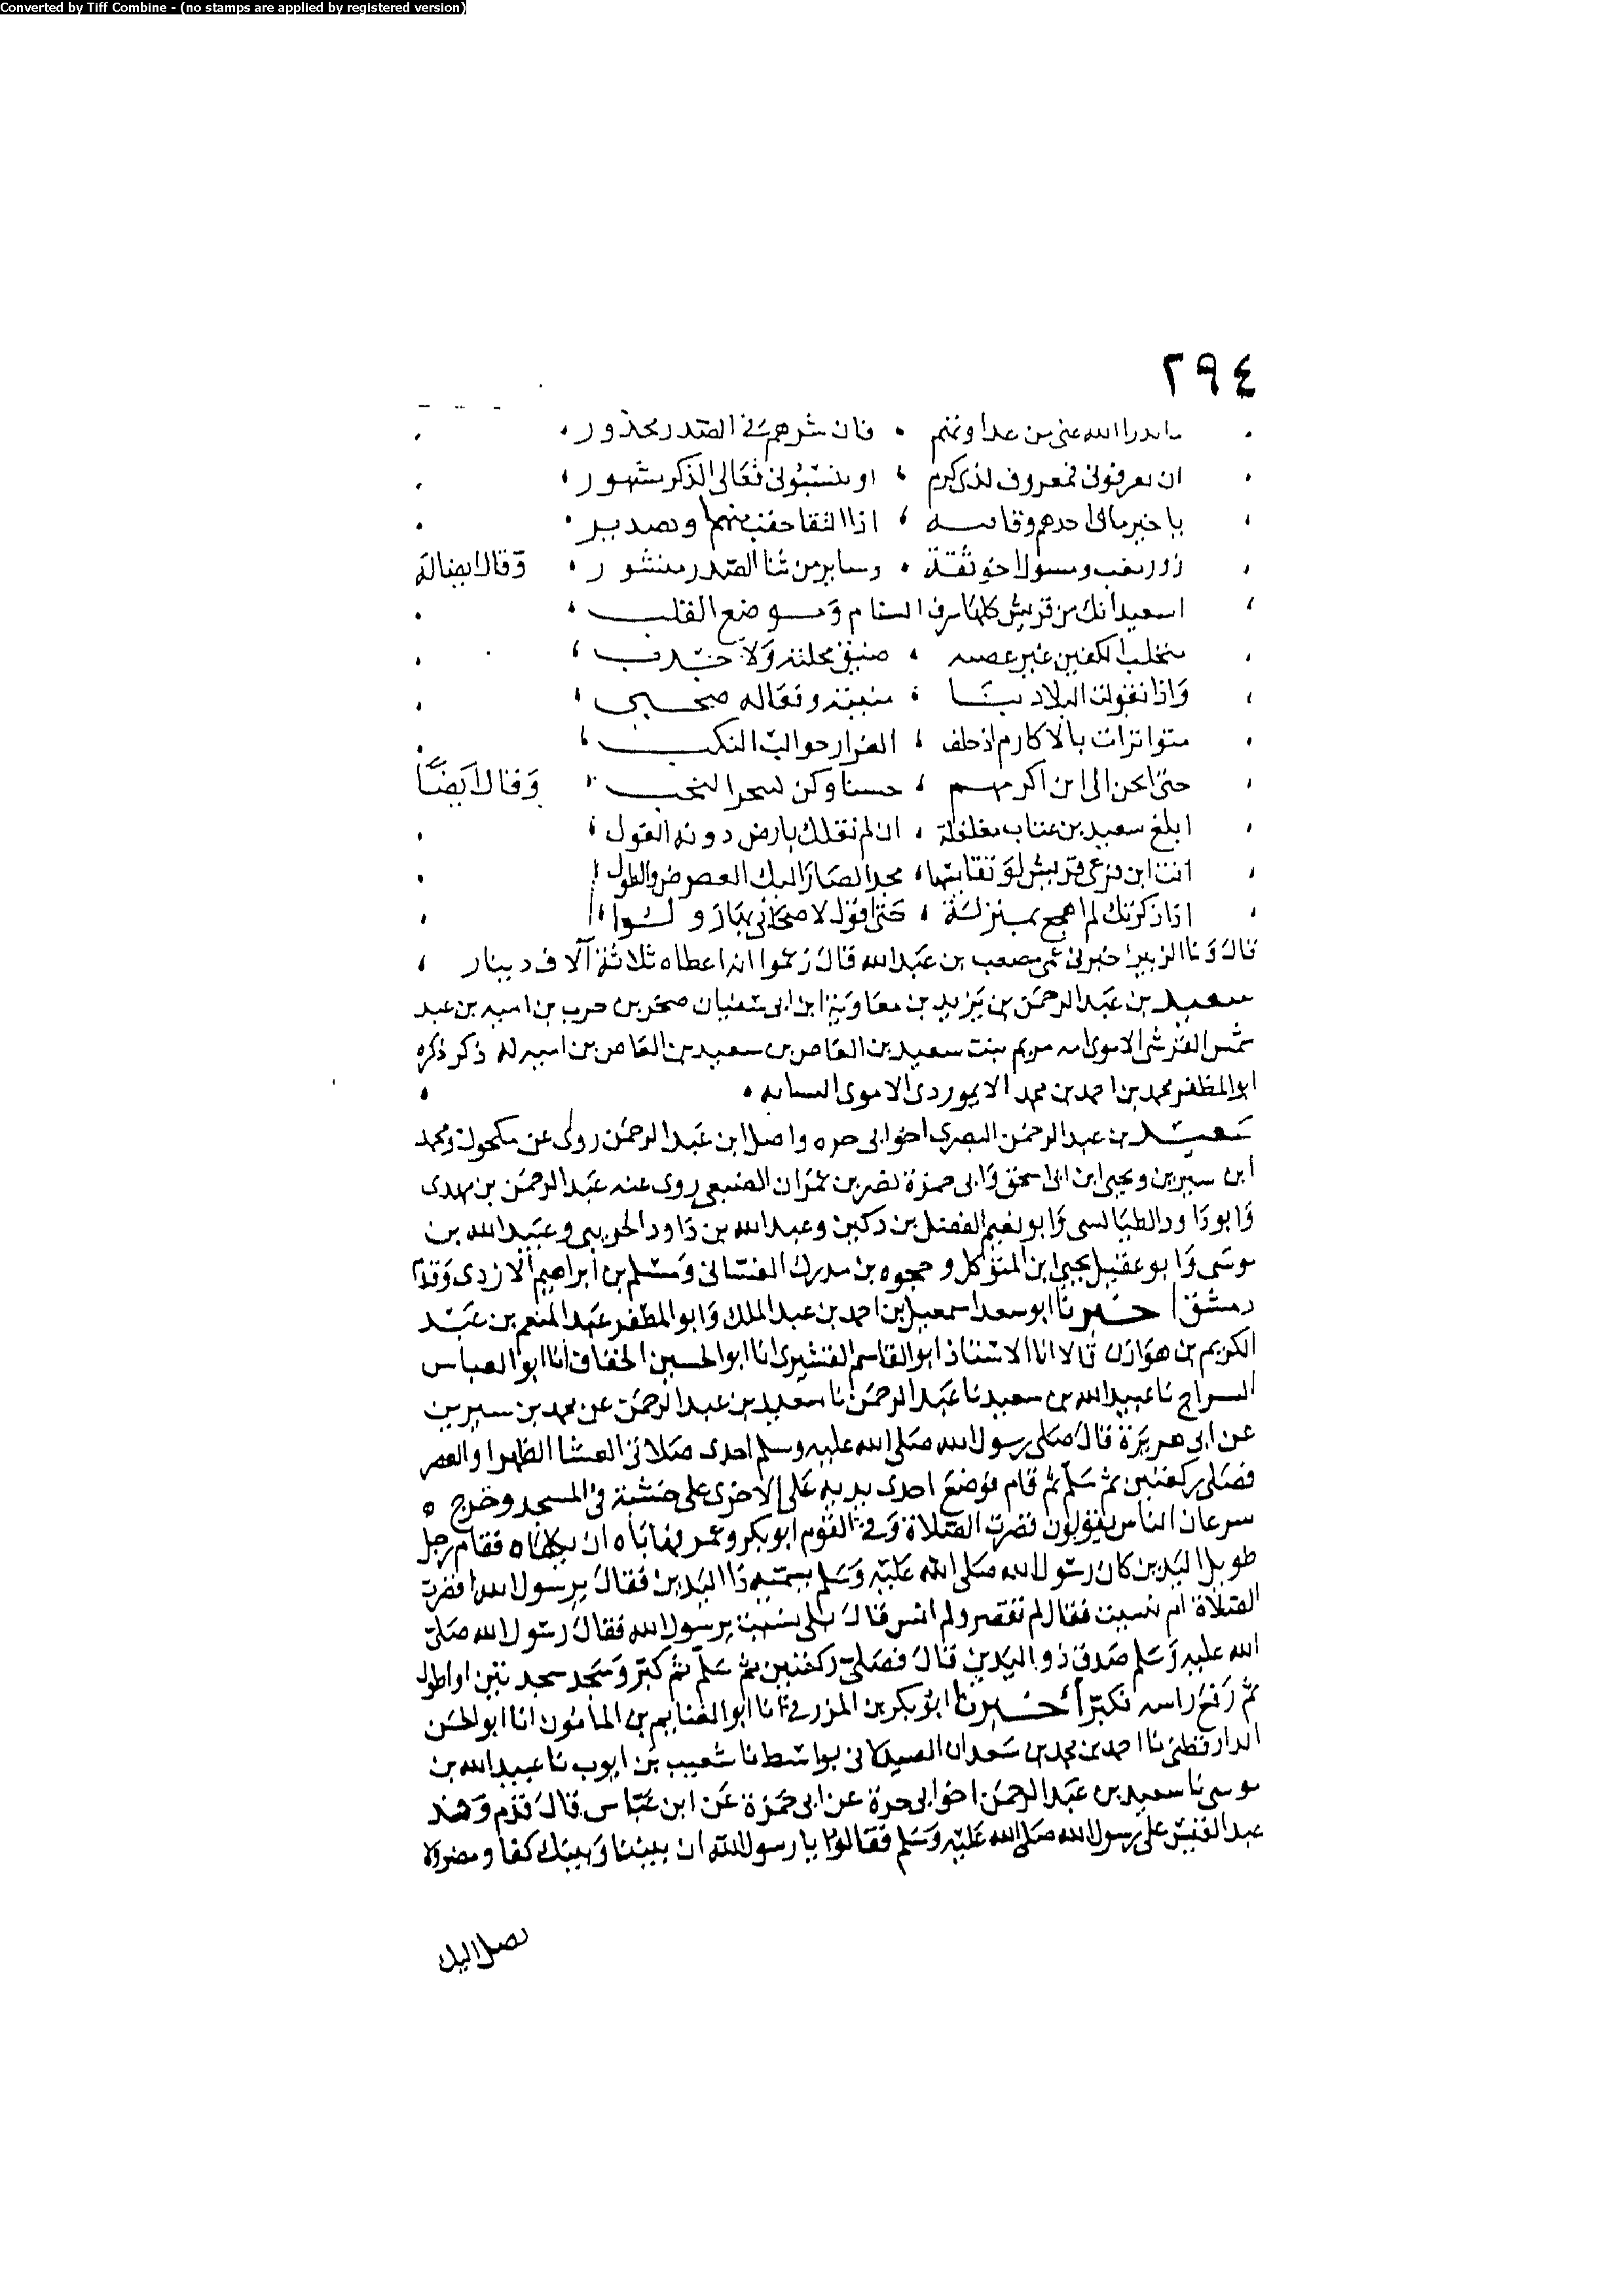 Converted by Tiff Combine - (no stamps are applied by registered version)
٢٩٤
ما يدرا الله عنى من عداوتهم ، فان شرهم فى الصدر محذور ،
ان يعرفونى فمعروف لذى كرم ، او ينسبونى فعالى الذكر مشهور ،
يا خير مافى احدهم وقا ، اذا التقا حقب منها وتصدير
زور مغب ومسول اخو ثقة ، وساير من ثنا الصدر منشور ، وقال ايضا له
اسعيد انك من قريش كلها شرف السنام وموضع القلب ،
متحلب الكفين غير عصيه ، ضيق محلته ولا جدب ،
واذا تغولت البلاد بنا ، منيته وفعاله صحبى ،
متواترات بالاكارم اذ خلف ، الغرار حوالب النكب ،
حتى انحن الى ابن اكرمهم ، حسنا وكن لسحر النخب وقال ايضا
ابلغ سعيد بن عتاب مغلغلة ، ان لم تغلك بارض دونه الغول ،
انت ابن فرعى قريش لو تقايسها ، مجد الصار اليك العرض والطول
اذا ذكرتك لم اهجع بمنزلة ، حتى اقول لاصحابى بها زولوا ،
قال ونا الزبير اخبرنى عمى مصعب بن عبد الله قال زعموا انه اعطاه ثلاثة آلاف دينار ،
سعيد بن عبد الرحمن بن يزيد بن معاوية ابن ابى سفيان صخر بن حرب بن اميه بن عبد
شمس القرشى الاموى امه مريم بنت سعيد بن العاص بن سعيد بن العاص بن اميه له ذكر ذكره
ابو المظفر محمد بن احمد بن محمد الابيوردى الاموى النسابه ،
سعيد بن عبد الرحمن البصرى اخو ابى حره واصل ابن عبد الرحمن روى عن مكحول ومحمد
ابن سيرين ويحيى ابن ابى اسحق وابى حمزة نصر بن عمران الضبعى روى عنه عبد الرحمن بن مهدى
وابو داود الطيالسى وابو نعيم الفضل بن دكين وعبد الله بن داود الخريبى وعبيد الله بن
موسى وابو عقيل يحيى ابن المتوكل ومحجوه بن مدرك الغسانى ومسلم بن ابراهيم الازدى وقدم
دمشق اخبرنا ابو سعد اسمعيل بن احمد بن عبد الملك وابو المظفر عبد المنعم بن عبد
الكريم بن هوازن قالا انا الاستاذ ابو القاسم القشيرى انا ابو الحسين الخفاف انا ابو العباس
السراج نا عبيد الله بن سعيد نا عبد الرحمن نا سعيد بن عبد الرحمن عن محمد بن سيرين
عن ابى هريرة قال صلى رسول الله صلى الله عليه وسلم احدى صلاتى العشا الظهر او العصر
فصلى ركعتين ثم سلم ثم قام فوضع احدى يديه على الاخرى على خشبة فى المسجد وخرج ه
سرعان الناس يقولون قصرت الصلاة وفى القوم ابو بكر وعمر فهاباه ان يكلماه فقام رجل
طويل اليدين كان رسول الله صلى الله عليه وسلم يسميه ذا اليدين فقال يرسول الله اقصرت
الصلاة ام نسيت فقال لم تقصر ولم انس قال بلى نسيت يرسول الله فقال رسول الله صلى
الله عليه وسلم صدق ذو اليدين قال فصلى ركعتين ثم سلم ثم كبر وسجد سجدتين او اطول
ثم رفع راسه فكبر اخبرنا ابو بكر بن المزرفى انا ابو الغنايم بن المامون انا ابو الحسن
الدارقطنى نا احمد بن محمد بن سعدان الصيدلانى بواسط نا شعيب بن ايوب نا عبيد الله بن
موسى نا سعيد بن عبد الرحمن اخو ابى حرة عن ابى حمزة عن ابن عباس قال قدم وفد
عبد القيس على رسول الله صلى الله عليه وسلم فقالوا يا رسول الله ان بيننا وبينك كفار مضر ولا
نصل اليك